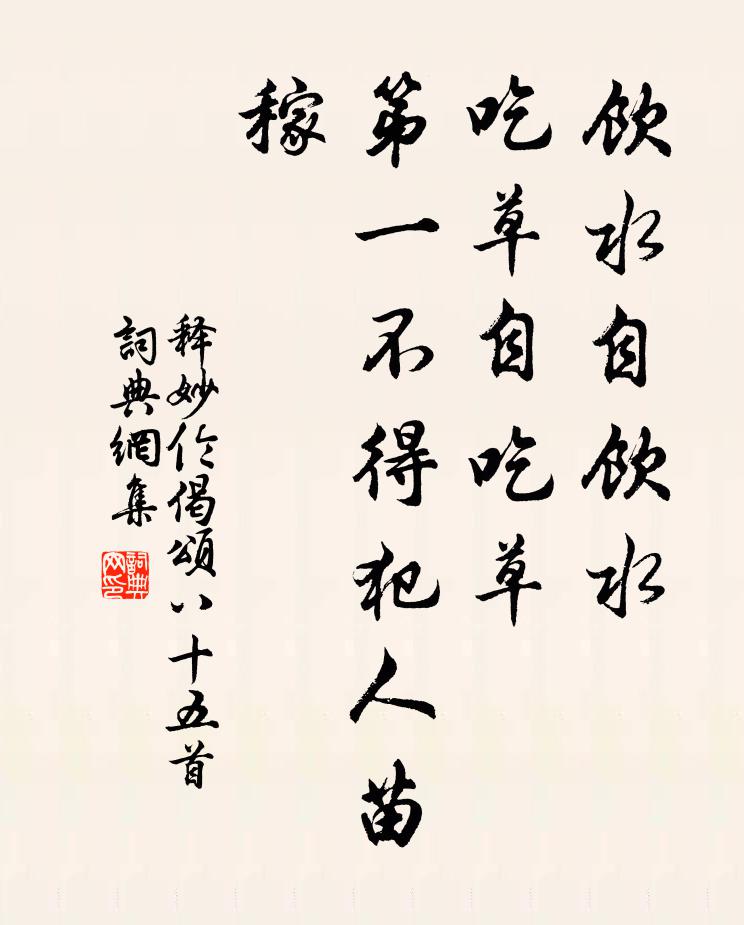 飲水自飲水
吃草自吃草
第一不得犯人苗
稼
释妙伦偈頌八十五首
詞典網集
詞典网印